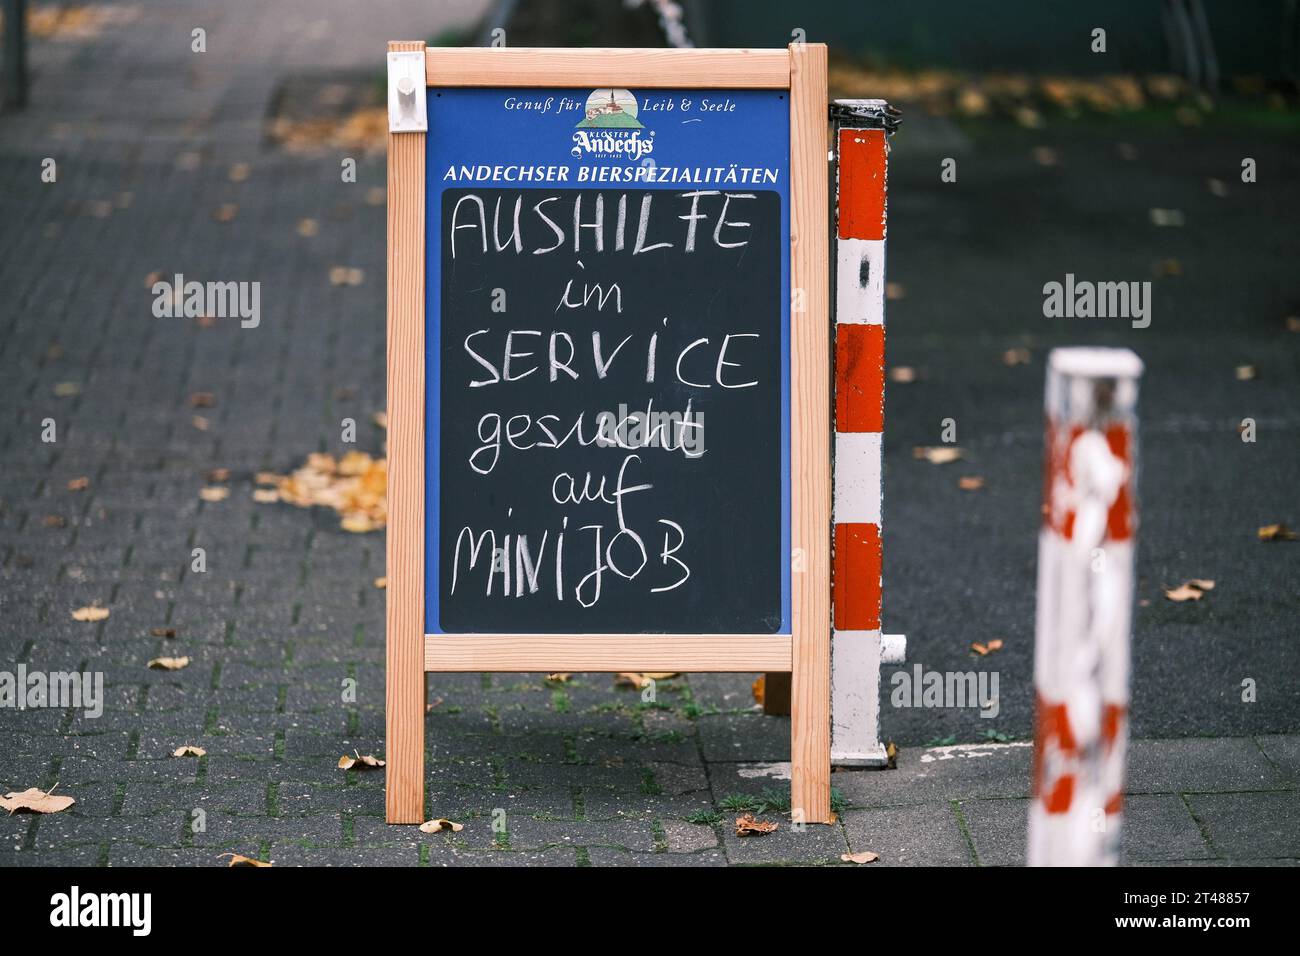 Genuß für Leib & Seele
KLOSTER
Andechs®
SEIT 1455
ANDECHSER BIERSPEZIALITÄTEN
AUSHILFE
im
SERVICE
gesucht
auf
MiNiJOB
alamy
Image ID: 2T48857
www.alamy.com